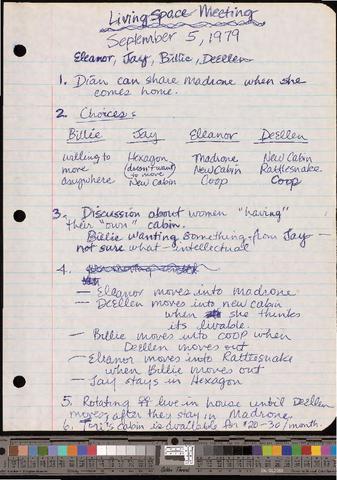 Living Space Meeting
September 5, 1979
Eleanor, Jay, Billie, DeEllen
1. Dian can share Madrone when she
comes home.
2. Choices:
Billie Jay Eleanor DeEllen
willing to Hexagon Madrone New Cabin
move (doesn't want to move) New Cabin Rattlesnake
anywhere New Cabin Coop Coop
3. Discussion about women "having"
their "own" cabin.
Billie wanting something from Jay —
not sure what — intellectual
4.
— Eleanor moves into madrone
— DeEllen moves into new cabin
when she thinks
its livable.
— Billie moves into COOP when
DeEllen moves out
— Eleanor moves into Rattlesnake
when Billie moves out
— Jay stays in Hexagon
5. Rotating live in house until DeEllen
moves, after they stay in Madrone
6. Teri's cabin is available for $20-30/month.